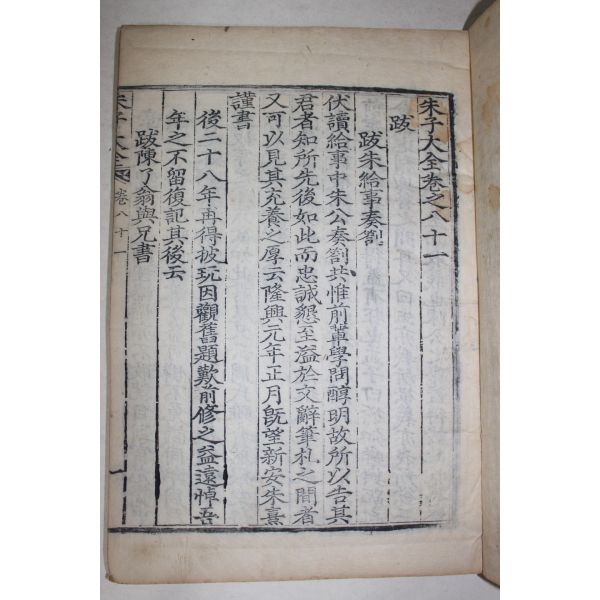 朱子大全卷之八十一
跋
跋朱給事奏劄
伏讀給事中朱公奏劄共惟前輩學問醇明故所以告其
君者知所先後如此而忠誠懇至溢於文辭筆札之間者
又可以見其充養之厚云隆興元年正月旣望新安朱熹
謹書
後二十八年再得披玩因觀舊題歎前修之益遠悼吾
年之不留復記其後云
跋陳了翁與兄書
朱子大全 卷八十一